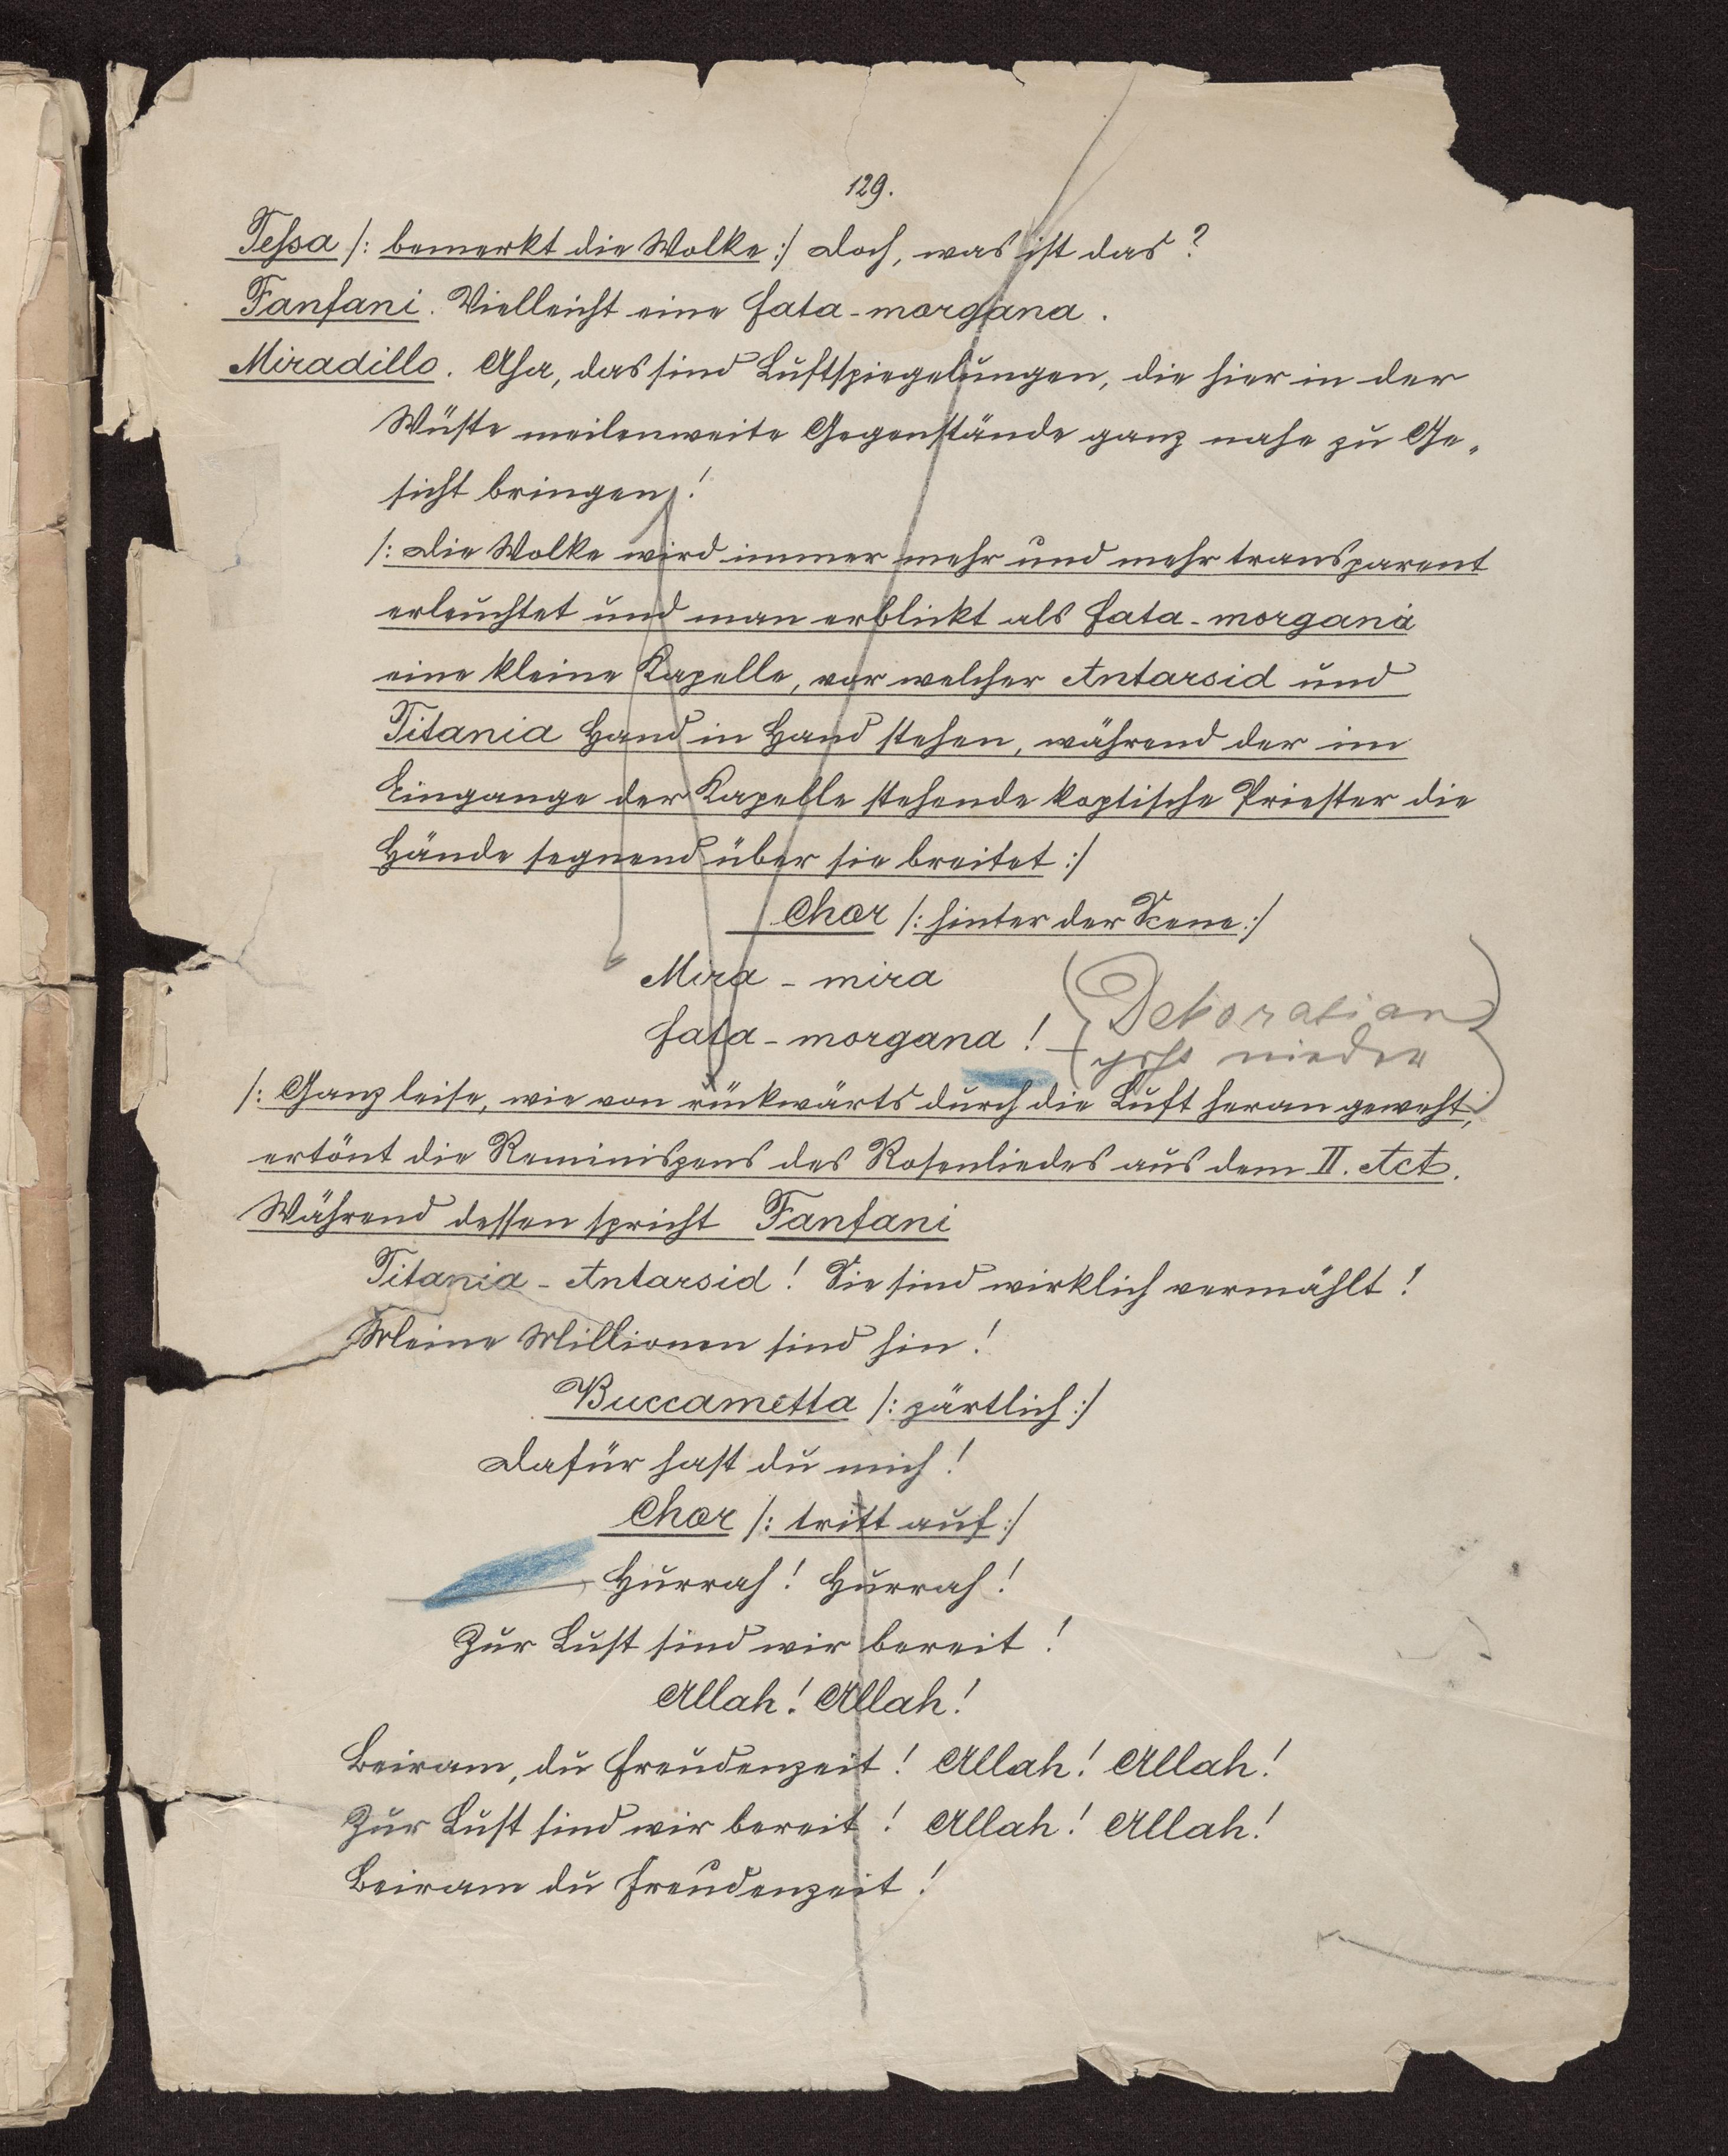 129.
Tessa /: bemerkt die Wolke :/ Doch, was ist das?
Fanfani. Vielleicht eine fata-morgana.
Miradillo. Aha, das sind Luftspiegelungen, die hier in der
Wüste meilenweite Gegenstände ganz nahe zu Ge-
sicht bringen!
/: Die Wolke wird immer mehr und mehr transparent
erleuchtet und man erblickt als fata-morgana
eine kleine Kapelle, vor welcher Antarsid und
Titania Hand in Hand stehen, während der im
Eingange der Kapelle stehende koptische Priester die
Hände segnend über sie breitet :/
Chor /: hinter der Scene :/
Mira - mira
fata-morgana!
Dekoration
geht nieder
/: Ganz leise, wie von rückwärts durch die Luft heran geweht,
ertönt die Reminiszens des Rosenliedes aus dem II. Act.
Während dessen spricht Fanfani
Titania - Antarsid! Sie sind wirklich vermählt!
Meine Millionen sind hin!
Buccametta /: zärtlich :/
Dafür hast du mich!
Chor /: tritt auf :/
Hurrah! Hurrah!
Zur Lust sind wir bereit!
Allah! Allah!
Beiram, du Freudenzeit! Allah! Allah!
Zur Lust sind wir bereit! Allah! Allah!
Beiram du Freudenzeit!